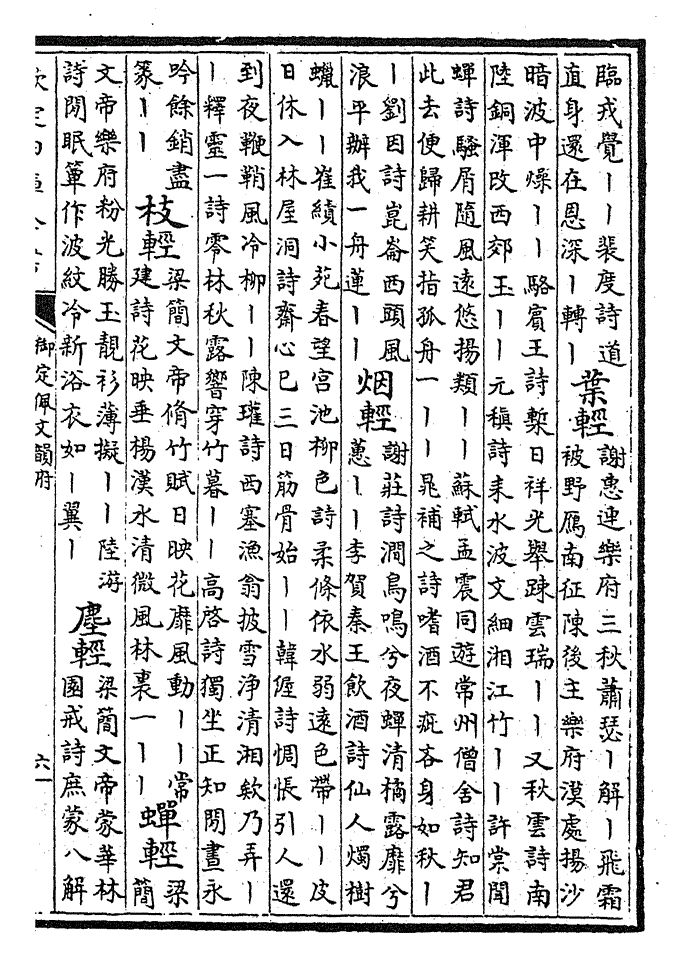 臨戎覺丨丨裴度詩道
直身還在恩深丨轉丨
葉輕
謝惠連樂府三秋蕭瑟丨解丨飛霜
被野鴈南征陳後主樂府漠處揚沙
暗波中燥丨丨駱賓王詩槧日祥光舉踈雲瑞丨丨又秋雲詩南
陸銅渾改西郊玉丨丨元稹詩耒水波文細湘江竹丨丨許棠聞
蟬詩騷屑隨風遠悠揚類丨丨蘇軾孟震同遊常州僧舍詩知君
此去便歸耕笑指孤舟一丨丨丨晁補之詩嗜酒不疵吝身如秋丨
丨劉因詩崑崙西頭風
浪平辦我一舟蓮丨丨
烟輕
謝莊詩澗鳥鳴兮夜蟬清橘露靡兮
蕙丨丨李賀秦王飲酒詩仙人燭樹
蠟丨丨崔績小苑春望宮池柳色詩柔條依水弱遠色帶丨丨皮
日休入林屋洞詩齋心已三日筋骨始丨丨韓偓詩惆悵引人還
到夜鞭鞘風冷柳丨丨陳瓘詩西塞漁翁披雪净清湘欸乃弄丨
丨釋靈一詩零林秋露響穿竹暮丨丨高啓詩獨坐正知閒晝永
吟餘銷盡
篆丨丨
枝輕
梁簡文帝脩竹賦日映花靡風動丨丨常
建詩花映垂楊漢水清微風林裏一丨丨丨
蟬輕
梁
簡
文帝樂府粉光勝玉靚衫薄擬丨丨陸游
詩閒眠簟作波紋冷新浴衣如丨翼丨
塵輕
梁簡文帝蒙華林
園戒詩庶蒙八解
欽定四庫全書
御定佩文韻府
六一